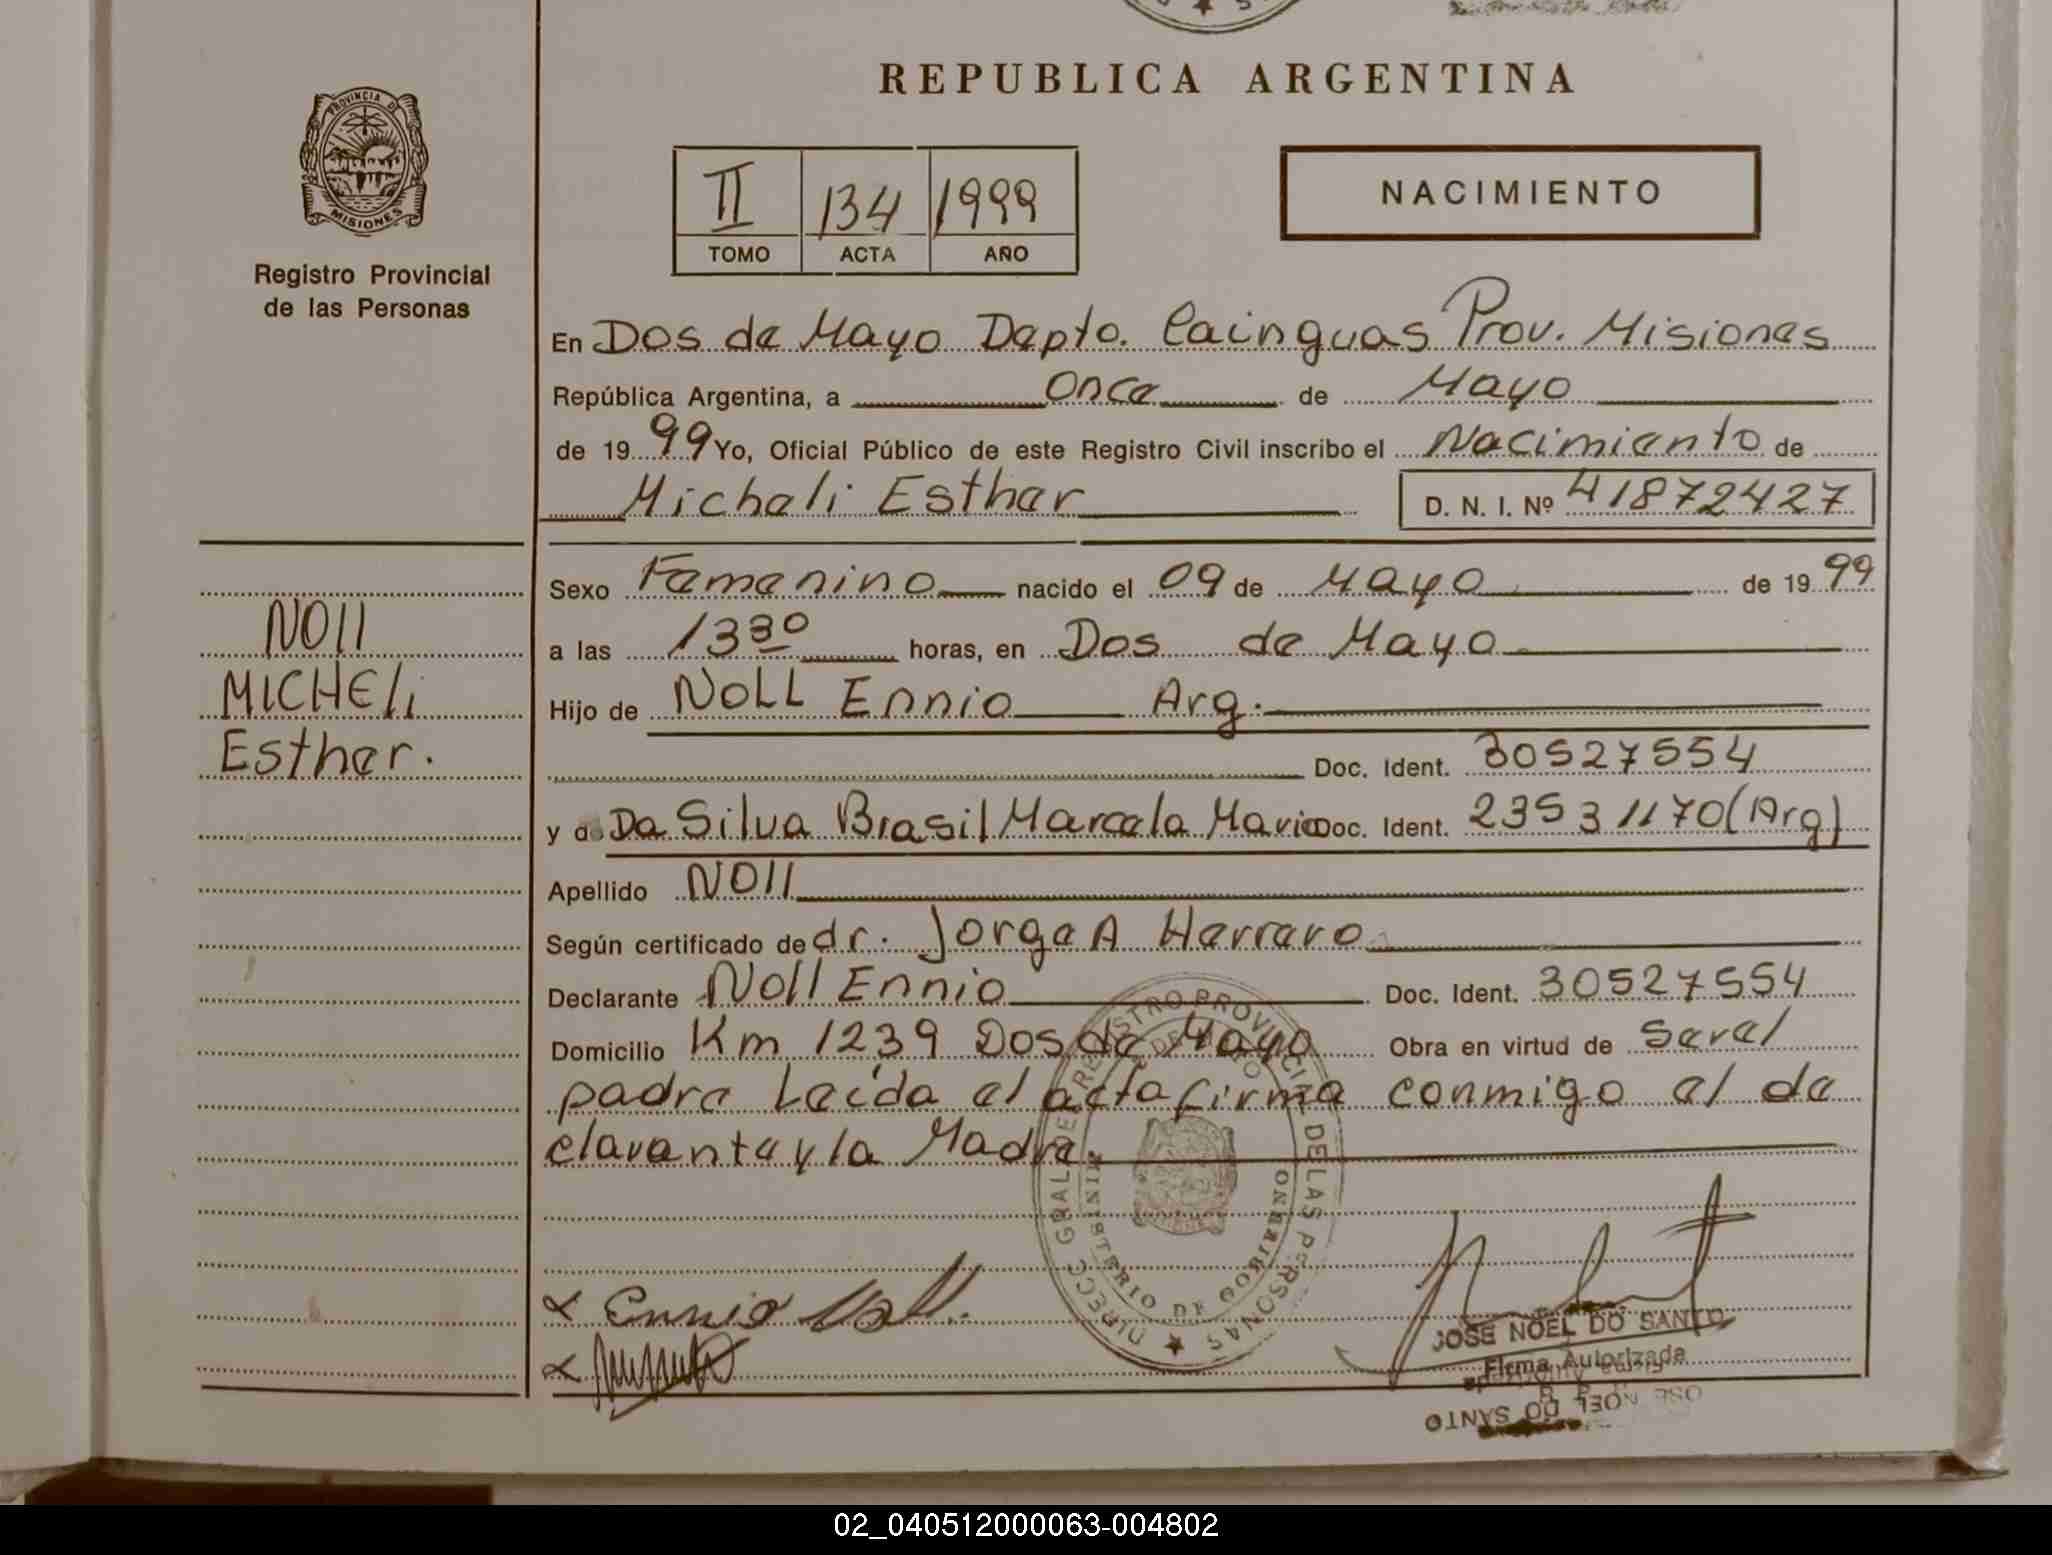 REPUBLICA ARGENTINA
PROVINCIA DE
MISIONES
Registro Provincial
de las Personas
II 134 1999
TOMO ACTA AÑO
NACIMIENTO
En Dos de Mayo Depto. Cainguas Prov. Misiones
República Argentina, a Once de Mayo
de 19 99 Yo, Oficial Público de este Registro Civil inscribo el Nacimiento de
Micheli Esther D. N. I. Nº 41872427
Sexo Femenino nacido el 09 de Mayo de 19 99
a las 13 30 horas, en Dos de Mayo
Hijo de NOLL Ennio Arg.
Doc. Ident. 30527554
y de Da Silva Brasil Marcela Maria Doc. Ident. 23531170 (Arg)
Apellido NOll
Según certificado de dr. Jorge A Herrero
Declarante Noll Ennio Doc. Ident. 30527554
Domicilio Km 1239 Dos de Mayo Obra en virtud de Ser el
padre Leída el acta firma conmigo el de
clarante y la Madre.
NOll
MICHEli
Esther.
Ennio Noll.
DIRECC GRAL DE REGISTRO PROVINCI DE LAS PERSONAS
MINISTERIO DE GOBIERNO
JOSE NOEL DO SANTO
Firma Autorizada
02_040512000063-004802